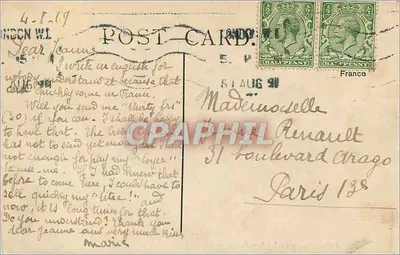 4-8-19
LONDON W.1.
POST CARD
LONDON W.1.
Dear Jeanne
I write in english for
nobody understand it because that
card quickly come in France.
Will you send me "thirty frs"
(30) if you can. I shall be happy
to have that. The
has not to send yet money and I have
not enough for pay my "loyer"
Excuse me. If I had known that
before to come here, I could have to
sell quickly my "titre" and
now, it is long times for that.
Do you understand? Thank you
dear Jeanne and very much kiss
Marie
AUG 19
AUG 19
HALFPENNY
HALFPENNY
France
Mademoiselle
Jeanne Renault
31 boulevard Arago
Paris 13e
CPAPHIL